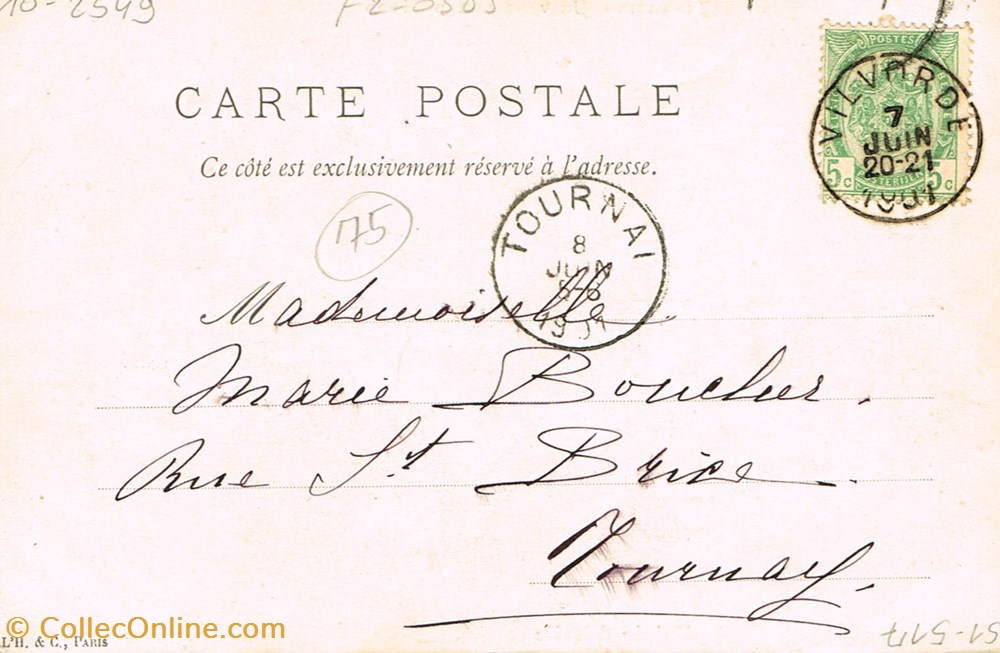 10-2549
CARTE POSTALE
Ce côté est exclusivement réservé à l'adresse.
POSTES
5c 5c
VILVORDE
7
JUIN
20-21
1901
75
TOURNAI
8
JUIN
1901
Mademoiselle
Marie Boucher.
Rue St Brice.
Tournay.
L'H. & C., PARIS
© CollecOnline.com
51-517